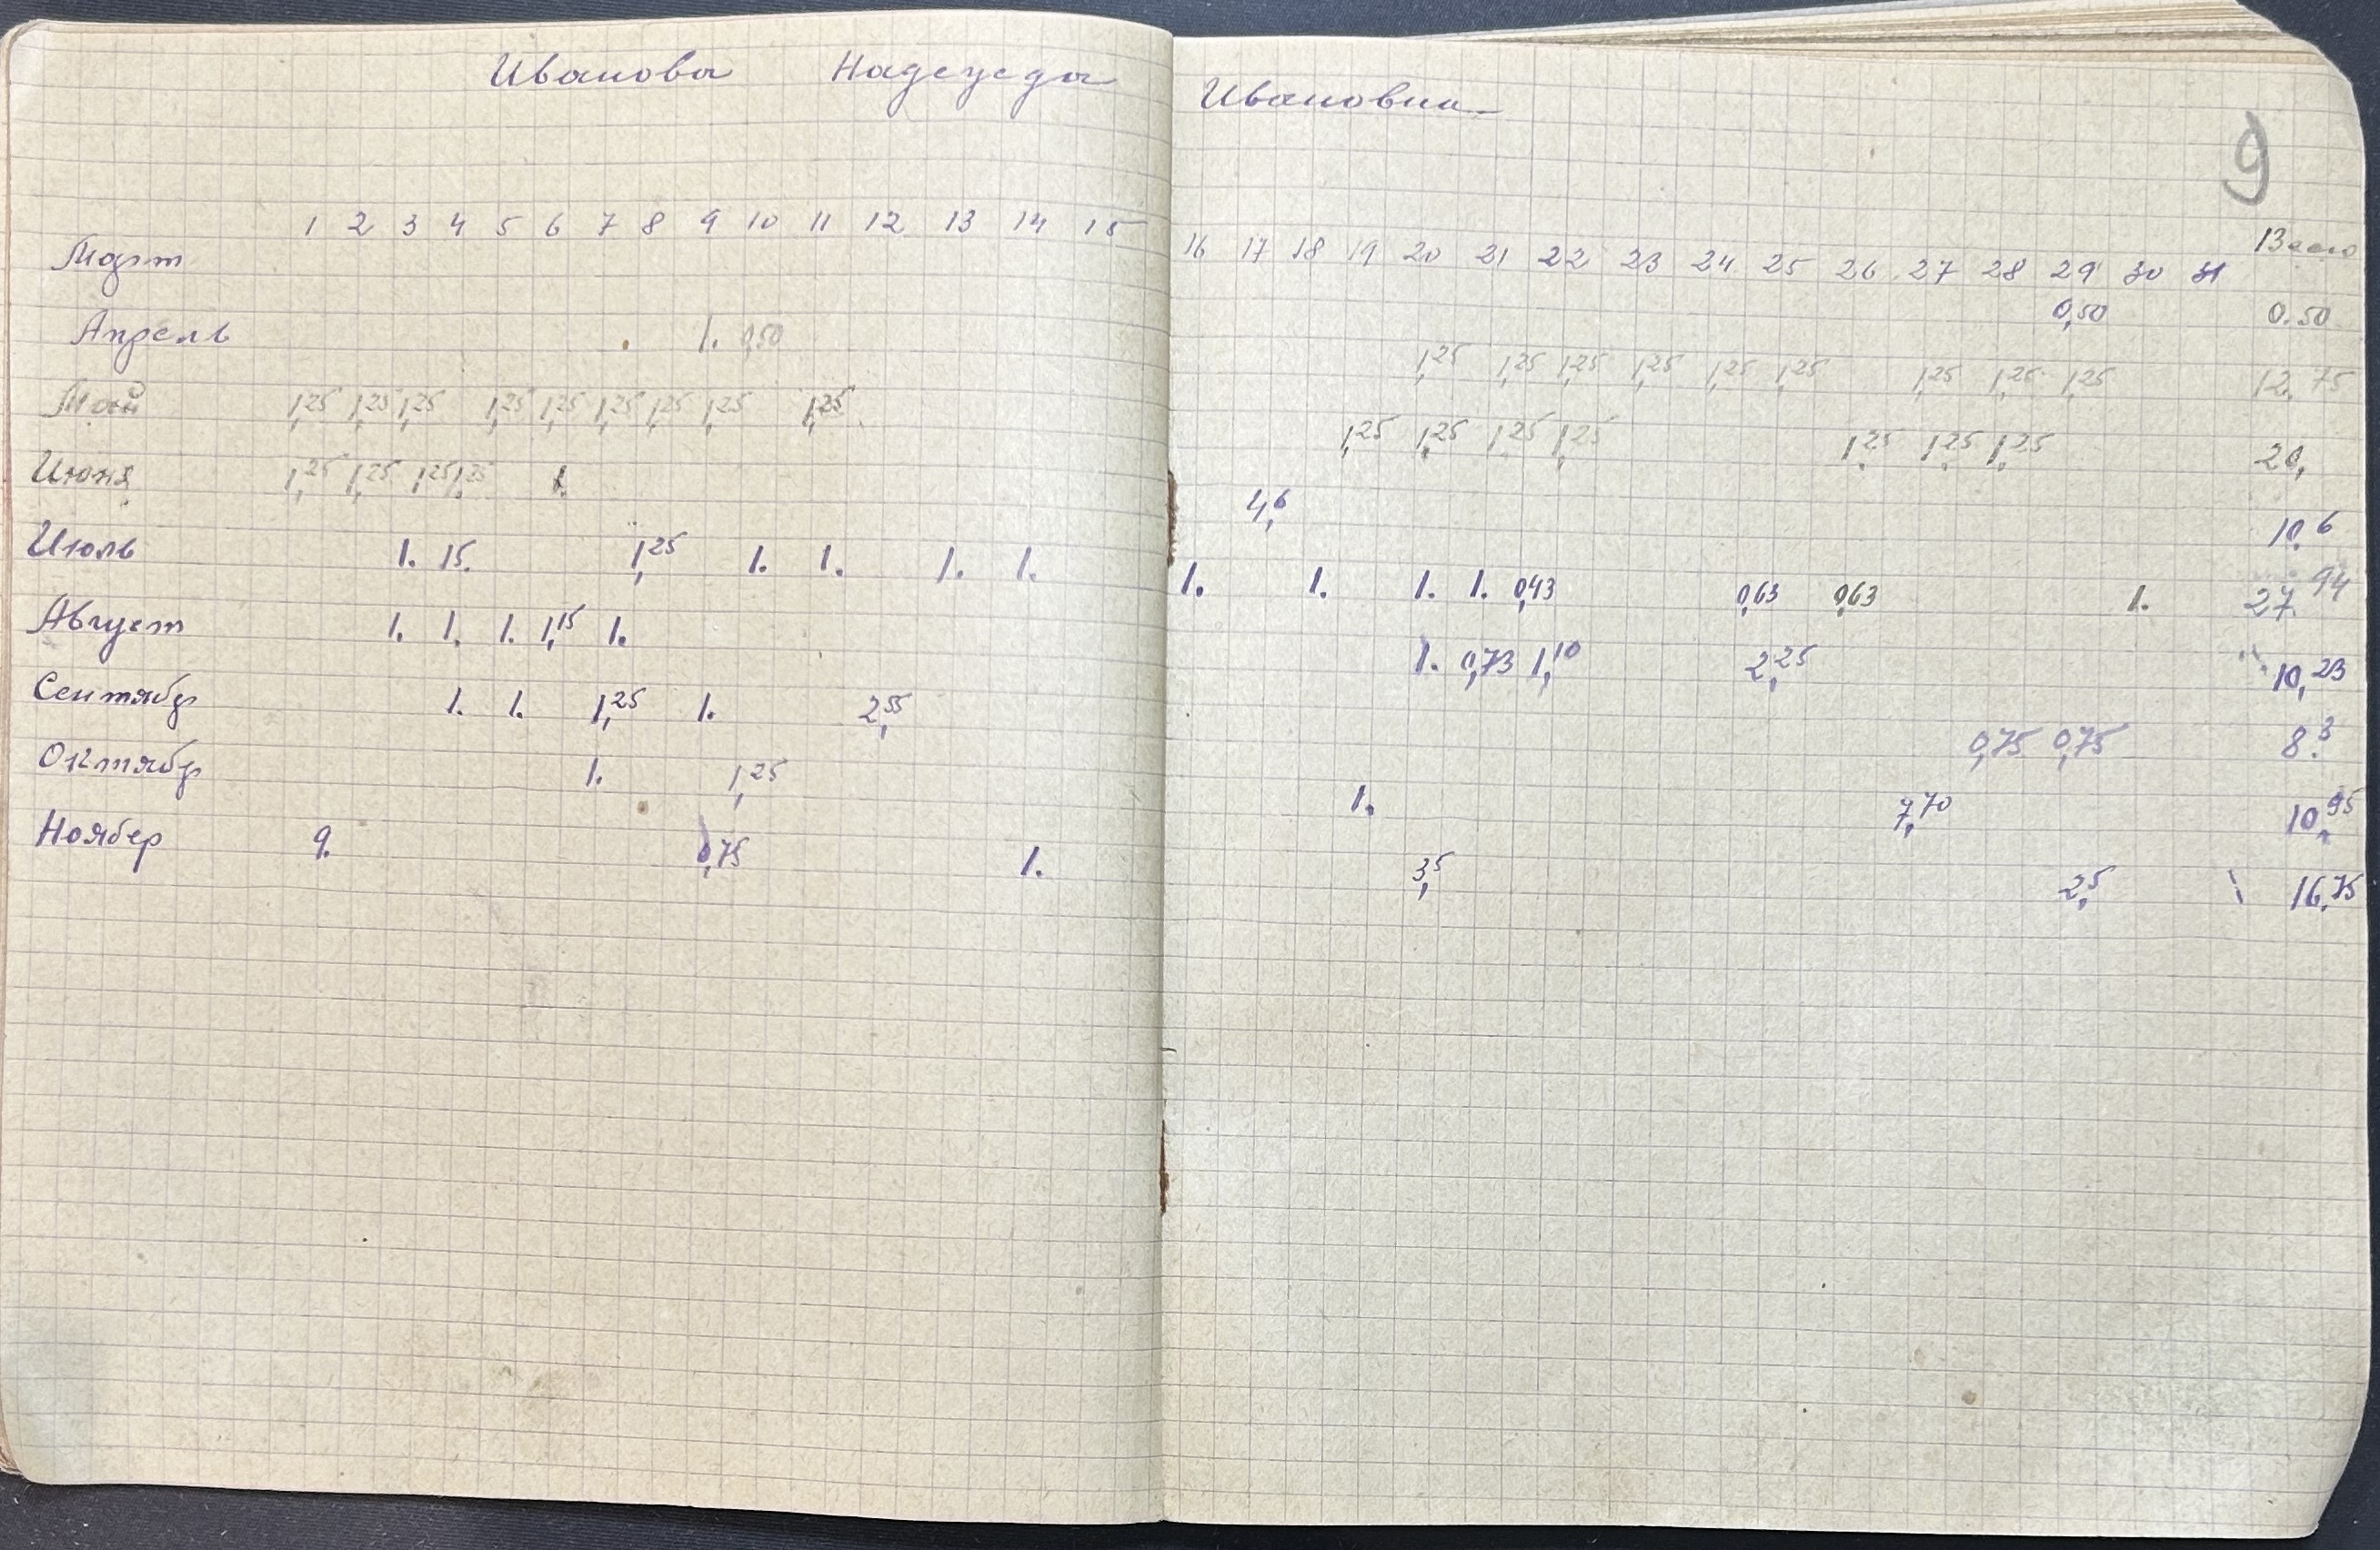 Иванова Надежда Ивановна
9
1 2 3 4 5 6 7 8 9 10 11 12 13 14 15 16 17 18 19 20 21 22 23 24 25 26 27 28 29 30 31 Всего
Март 0,50 0.50
Апрель 1. 0,50 1,25 1,25 1,25 1,25 1,25 1,25 1,25 1,25 1,25 12.75
Май 1,25 1,25 1,25 1,25 1,25 1,25 1,25 1,25 1,25 1,25 1,25 1,25 1,25 1,25 1,25 1,25 20,
Июня 1,25 1,25 1,25 1,25 1. 4,6 10.6
Июль 1. 15. 1,25 1. 1. 1. 1. 1. 1. 1. 1. 0,43 0,63 0,63 1. 27.94
Август 1. 1. 1. 1,15 1. 1. 0,73 1,10 2,25 10,23
Сентябр 1. 1. 1,25 1. 2,55 0,75 0,75 8.3
Октябр 1. 1,25 1. 7,70 10,95
Ноябер 9. 0,75 1. 3,5 2,5 16,75